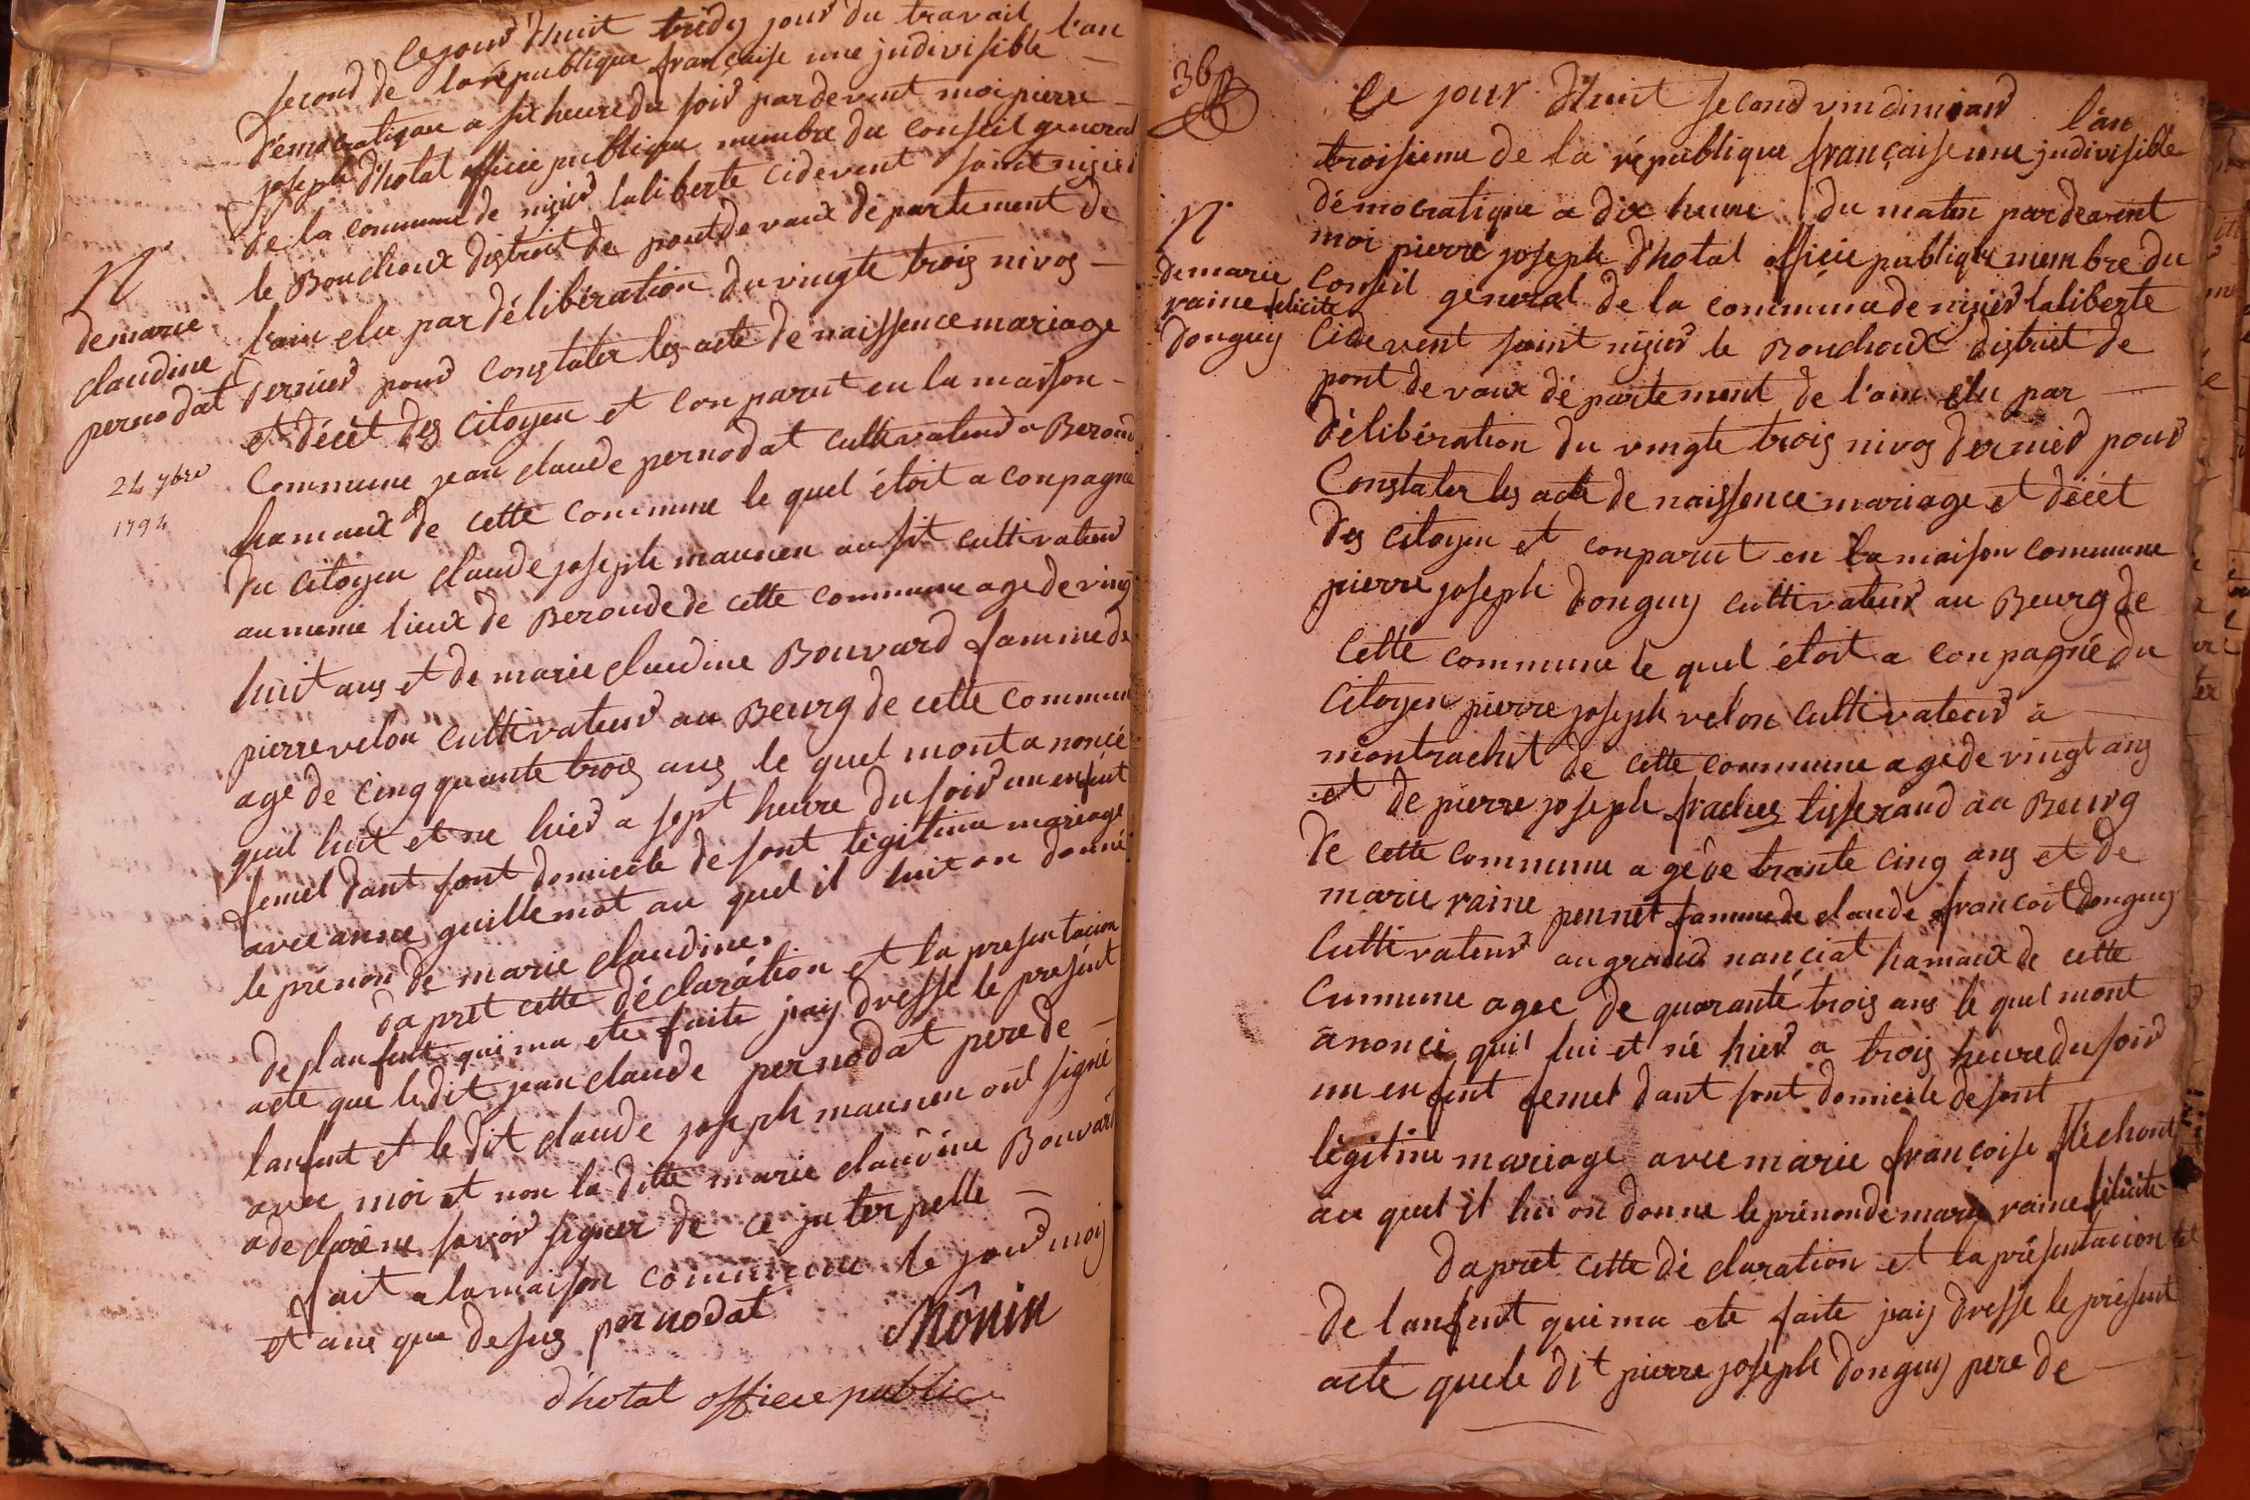 ce jour dhuit tridy jour du travail l'an
second de la république française une jndivisible
démocratique a sit heure du soir pardevent moi pierre
joseph d'hotal officie publique membre du conseil general
de la commune de nizier laliberte cidevent saint nizier
le Bouchoux distroit de pontdevaux departement de
N
de marie
claudine
pernodat
24 7bre
1794
l'ain elu par délibération du vingte trois nivos
dernier pour constater les acte de naissence mariage
et décèt des citoyen et conparut en la maison
commune jean claude pernodat cultivateur a Beroud
hamaux de cette commune le quel étoit a conpagné
du citoyen claude joseph maunen ausit cultivateur
au meme lieux de Beroude de cette commune age de ving
huit ans et de marie claudine Bouvard famme de
pierre velon cultivateur au Beurg de cette commune
agé de cinq quante trois ans le quel mont a noncé
quil luit et ne hier a sept heure du soir un enfent
femel dant sont domicile de sont légitime mariage
avec anne guillemot au quel il luit on donné
le prénon de marie claudine.
d'apret cette déclaration et la presentacion
de lanfent qui ma ete faite jay dresse le present
acte que ledit jean claude pernodat pere de
lanfent et le dit claude joseph maunen ont signé
avec moi et non la ditte marie claudine Bouvard
a declaré ne savoir signer de ce jnterpelle
fait a la maison commune le jour mois
et ans que desus pernodat
Mônin
d'hotal officie public
36
Ce jour dhuit second vindimiair l'an
troisieme de la république française une jndivisible
démocratique a dix heure du maten pardevent
moi pierre joseph d'hotal officie publique membre du
N
de marie
raine felicite
Donguy
conseil général de la commune de nizier laliberte
cidevent saint nizier le Bouchoux district de
pont de vaux département de l'ain élu par
délibération du vingte trois nivos dernier pour
constater les acte de naissence mariage et décèt
des citoyen et conparut en la maison commune
pierre joseph donguy cultivateur au Beurg de
cette commune le quel étoit a conpagné du
citoyen pierre joseph velon cultivateur a
montrachit de cette commune age de vingt ans
et de pierre joseph fradues tisserand au Beurg
de cette commune agé de trante cinq ans et de
marie raine pennet famme de claude françoit donguy
cultivateur au grand nanciat hamaux de cette
cummune agee de quarante trois ans le quel mont
anoncé quil lui et né hier a trois heure du soir
un enfent femel dant sont domicile de sont
légitime mariage avec marie françoise fléchont
au quel il lui on donne le prénon de marie raine félicité
d'apret cette dé claration et la présentacion
de lanfent qui ma ete faite jaij dresse le présent
acte que le dit pierre joseph donguy pere de